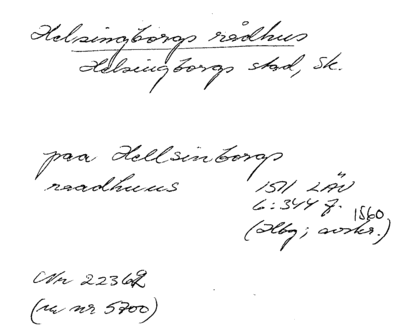 Helsingborgs rådhus
Helsingborgs stad, Sk.
paa Hellsinborgs
raadhuus
1511 LÄU
6:344 f.
1560
(Hbg; avskr.)
Nr 22362
(u nr 5700)